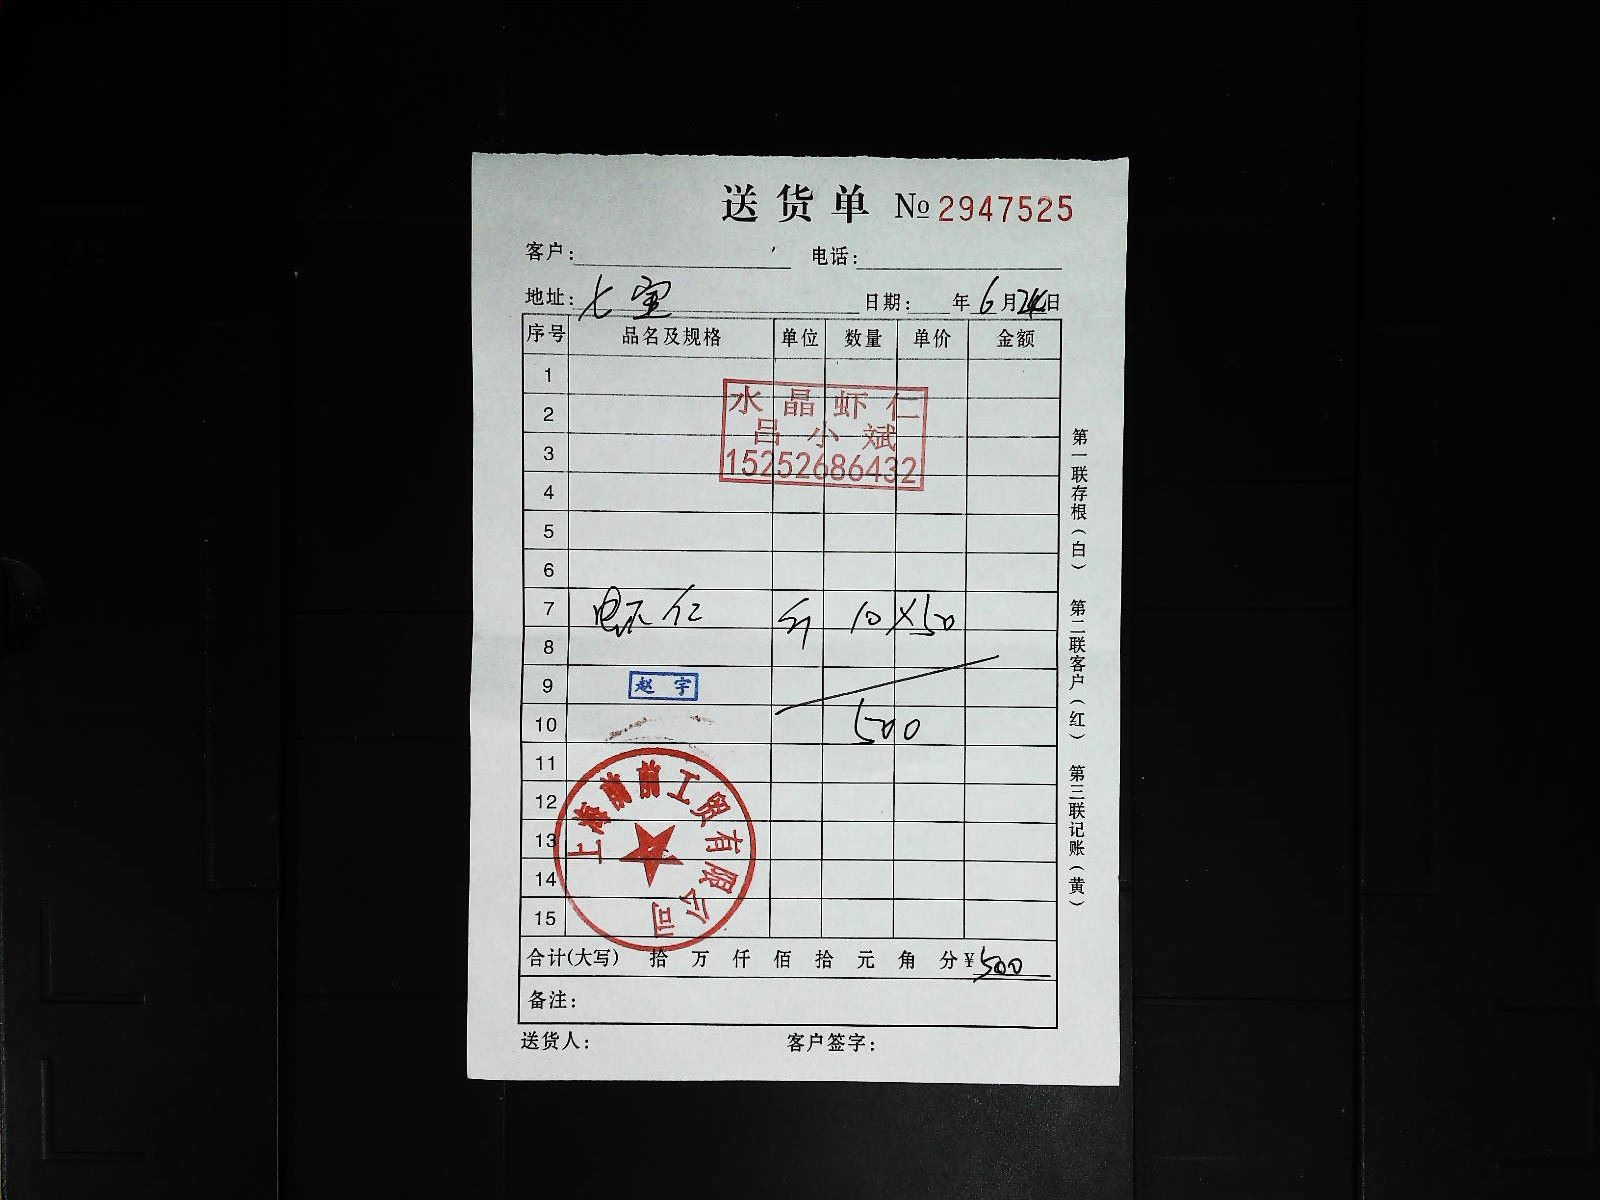 送货单 №2947525
客户: 电话:
地址: 七宝 日期: 年 6 月 24 日
序号 品名及规格 单位 数量 单价 金额
1
水晶虾仁
2
吕小斌
3
15252686432
4
5
6
7 虾仁 斤 10 X 50
8
9 赵宇
10 500
11
12
13
14
15
上海前前工贸有限公司
合计(大写) 拾 万 仟 佰 拾 元 角 分 ¥500
备注:
送货人: 客户签字:
第一联存根(白) 第二联客户(红) 第三联记账(黄)